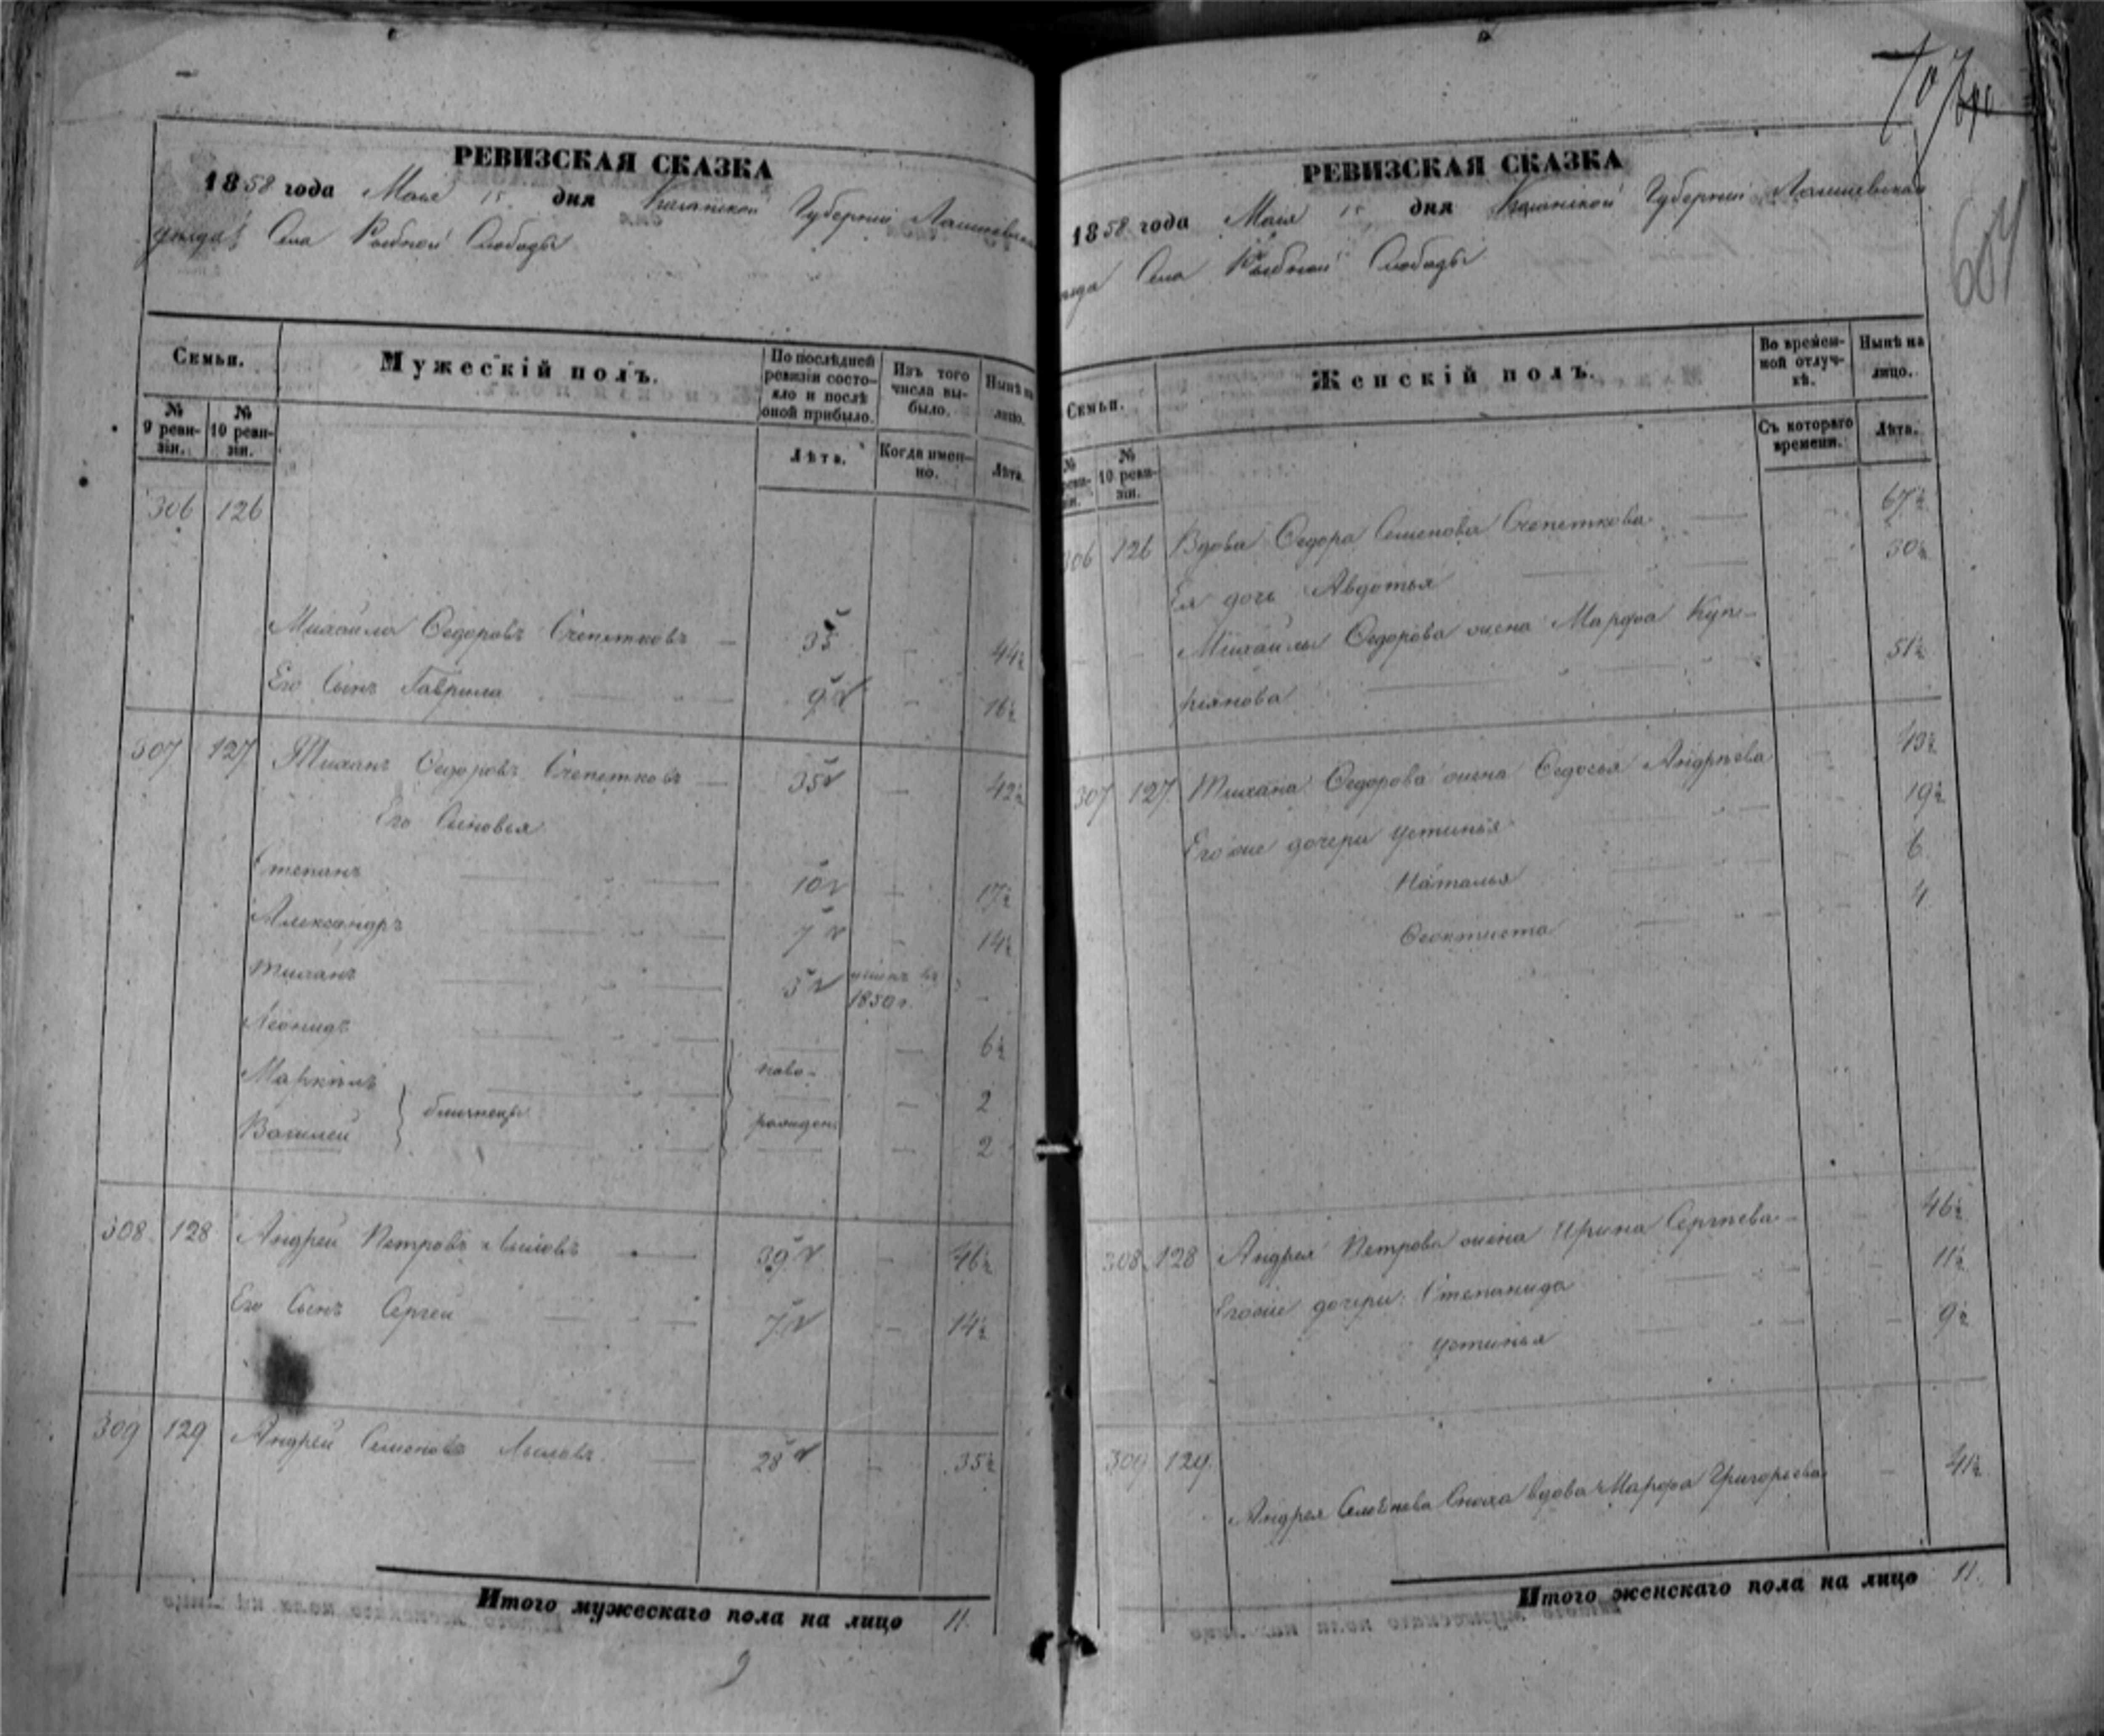 РЕВИЗСКАЯ СКАЗКА
1858 года Мая 15 дня Казанской Губернии Лаишевска
уезда Села Рыбной Слободы
Семьи.
Мужескій полъ.
По послѣдней ревизіи состо-
яло и послѣ оной прибыло.
Изъ того числа вы-
было.
Нынѣ на лицо.
№ 9 реви-
зіи.
№ 10 реви-
зіи.
Лѣта.
Когда имен-
но.
Лѣта.
306 126
Михайла Ѳедоровъ Счепетковъ 35 44½
Его Сынъ Гаврила 9 16½
307 127 Тиханъ Ѳедоровъ Счепетковъ 35 42½
Его Сыновья
Степанъ 10 17½
Александръ 7 14½
Тиханъ 5 умеръ въ 1850 г. -
Леонидъ 6½
Маркелъ ново- 2
близнецы
Василей рожден 2
308 128 Андрей Петровъ 39 46½
Его Сынъ Сергей 7 14½
309 129 Андрей Семеновъ 28 35½
Итого мужескаго пола на лицо 11.
9
707
604
РЕВИЗСКАЯ СКАЗКА
1858 года Мая 15 дня Казанской Губерніи Лаишевскаго
Села Рыбной Слободы
Семьи.
Женскій полъ.
Во времен-
ной отлуч-
кѣ.
Нынѣ на лицо.
№ реви-
зіи.
№ 10 реви-
зіи.
Съ котораго времени.
Лѣта.
306 126 Вдова Ѳедора Семенова Счепеткова 67½
Ея дочь Авдотья 30½
Михайлы Ѳедорова жена Марфа Купе-
ріянова 51½
307 127 Тихана Ѳедорова жена Ѳедосья Андреева 43½
Его же дочери Устинья 19½
Наталья 6
Ѳеоктиста 4
308 128 Андрея Петрова жена Ирина Сергѣева 46½
Его же дочери: Степанида 11½
Устинья 9½
309 129
Андрея Семенова Сноха вдова Марфа Григорьева 41½
Итого женскаго пола на лицо 11.